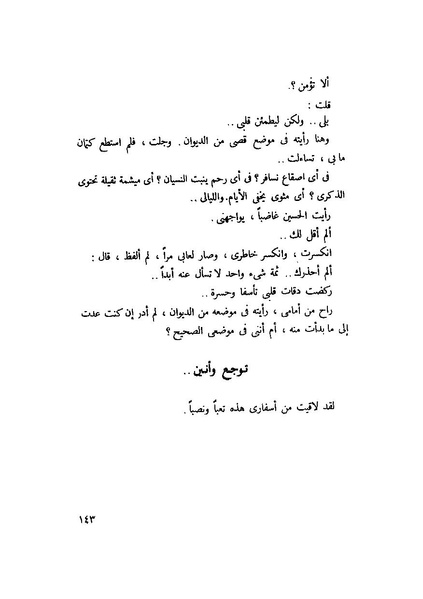 ألا تؤمن ؟.
قلت :
بلى .. ولكن ليطمئن قلبى ..
وهنا رأيته فى موضع قصى من الديوان . وجلت ، فلم استطع كتمان
ما بى ، تساءلت ..
فى أى اصقاع نسافر ؟ فى أى رحم ينبت النسيان ؟ أى ميشمة ثقيلة تحتوى
الذكرى ؟ أى مثوى يخفى الأيام والليالى ..
رأيت الحسين غاضباً ، يواجهنى .
ألم أقل لك ..
انكسرت ، وانكسر خاطرى ، وصار لعابى مراً ، لم ألفظ ، قال :
ألم أحذرك .. ثمة شىء واحد لا تسأل عنه أبداً ..
ركضت دقات قلبى تأسفا وحسرة ..
راح من أمامى ، رأيته فى موضعه من الديوان ، لم أدر إن كنت عدت
إلى ما بدأت منه ، أم أننى فى موضعى الصحيح ؟
توجع وأنين ..
لقد لاقيت من أسفارى هذه تعباً ونصباً .
١٤٣